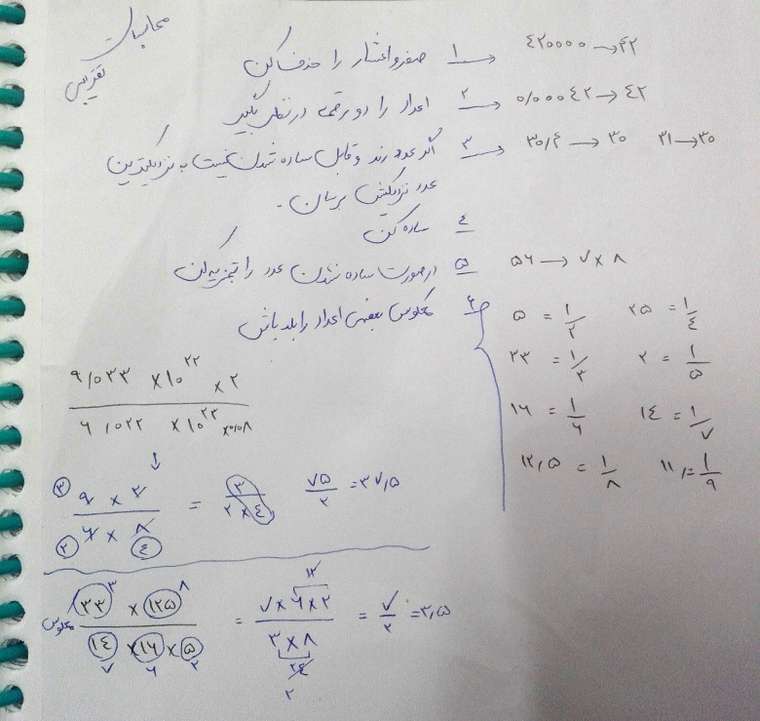 محاسبات
تقریبی
۱ → صفر و اعشار را حذف کن ۴۲۰۰۰۰ → ۴۲
۲ → اعداد را دو رقمی در نظر بگیر ۰/۰۰۰۴۲ → ۴۲
۳ → اگر عدد رند و قابل ساده شدن نیست به نزدیکترین ۳۰/۴ → ۳۰ ۳۱ → ۳۰
عدد نزدیکش برسان.
۴ ساده کن
۵ در صورت ساده نشدن عدد را تجزیه کن ۵۶ → ۷ × ۸
۶ معکوس بعضی اعداد را بلد باش
۵ = ۱/۲ ۲۵ = ۱/۴
۳۳ = ۱/۳ ۲ = ۱/۵
۱۶ = ۱/۶ ۱۴ = ۱/۷
۱۲,۵ = ۱/۸ ۱۱ = ۱/۹
۹/۰۳۳ × ۱۰^۲۲ × ۲
۶/۰۲۲ × ۱۰^۲۳ × ۰/۰۸
↓
۳ ۹ × ۲ = ۳ ۷۵ = ۳۷,۵
۲ ۶ × ۸ ۴ ۲ × ۴ ۲
معکوس ۳۳ ۳ × ۱۲۵ ۸ = ۷ × ۶ × ۲ ۱۲ = ۷ = ۳,۵
۱۴ × ۱۶ × ۵ ۳ × ۸ ۲
۷ ۶ ۲ ۲۴
۲